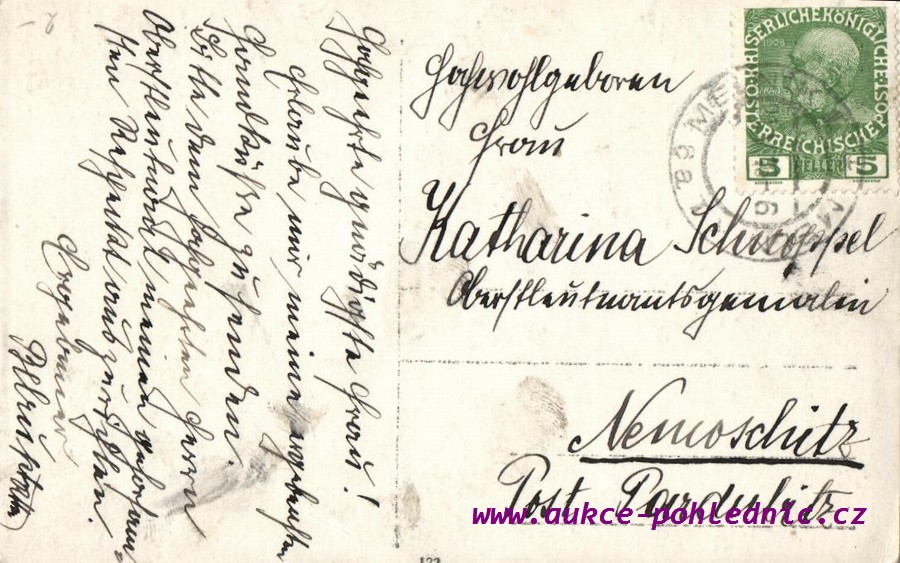 Hochgeehrte gnädigste Frau!
Erlaube mir meine ergebensten
Handküsse zu senden.
Bitte dem hochgeehrten Herrn
Oberstleutnant meinen gehorsam-
sten Respekt auszurichten.
Ergebener
Hochwohlgeboren
Frau
Katharina Schwappel
Oberstleutnantsgemalin
Nemoschitz
Post Pardubitz
KAISERLICHE KÖNIGLICHE ÖSTERREICHISCHE POST
1908
5 HELLER 5
www.aukce-pohlednic.cz
122